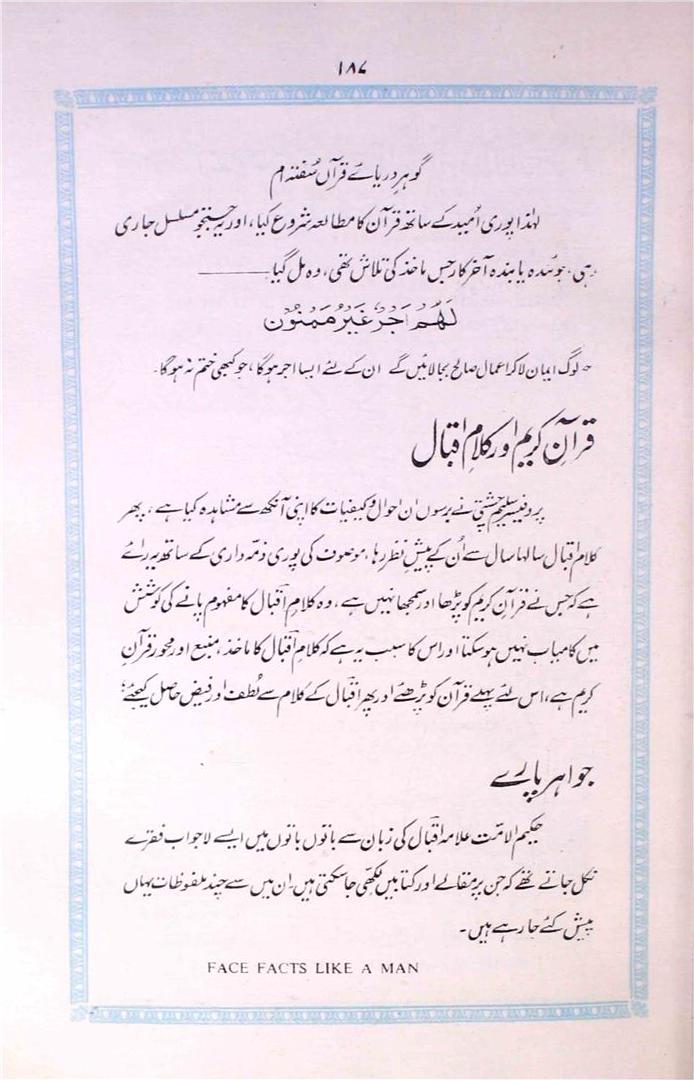 ۱۸۷
گوہرِ دریائے قرآں سُفتہ ام
لہٰذا پوری اُمید کے ساتھ قرآن کا مطالعہ شروع کیا، اور یہ جستجو مسلسل جاری
رہی، جوئندہ یابندہ آخر کار جس ماخذ کی تلاش تھی، وہ مل گیا ــــــــ
لَهُمْ اَجْرٌ غَيْرُ مَمْنُوْنٍ
جو لوگ ایمان لا کر اعمال صالح بجا لائیں گے ان کے لئے ایسا اجر ہوگا، جو کبھی ختم نہ ہوگا۔
قرآنِ کریم اور کلامِ اقبال
پروفیسر سلیم چشتی نے برسوں ان احوال و کیفیات کا اپنی آنکھ سے مشاہدہ کیا ہے، پھر
کلامِ اقبال سالہا سال سے اُن کے پیشِ نظر رہا، موصوف کی پوری ذمہ داری کے ساتھ یہ رائے
ہے کہ جس نے قرآنِ کریم کو پڑھا اور سمجھا نہیں ہے، وہ کلامِ اقبال کا مفہوم پانے کی کوشش
میں کامیاب نہیں ہو سکتا اور اس کا سبب یہ ہے کہ کلامِ اقبال کا ماخذ، منبع اور محور قرآنِ
کریم ہے، اس لئے پہلے قرآن کو پڑھئے اور پھر اقبال کے کلام سے لُطف اور فیض حاصل کیجئے؛
جواہر پارے
حکیم الامّت علامہ اقبال کی زبان سے باتوں باتوں میں ایسے لاجواب فقرے
نکل جاتے تھے کہ جن پر مقالے اور کتابیں لکھی جا سکتی ہیں۔ ان میں سے چند ملفوظات یہاں
پیش کئے جا رہے ہیں۔
FACE FACTS LIKE A MAN